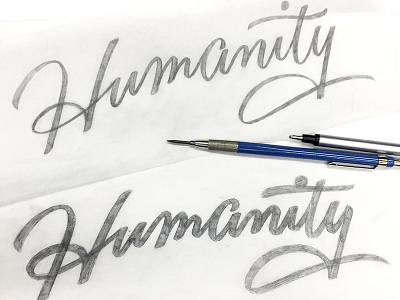 Humanity
Humanity